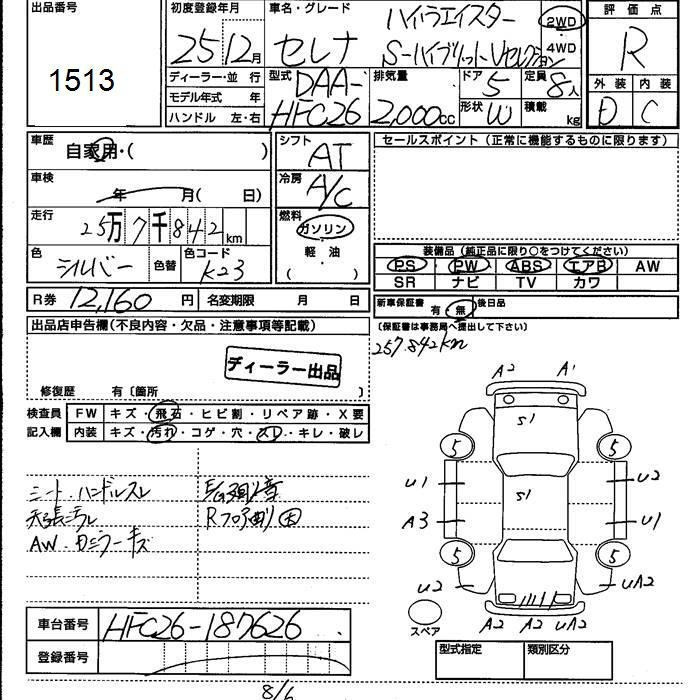 出品番号
1513
初度登録年月
25 12月
ディーラー・並 行
モデル年式 年
ハンドル 左・右
車名・グレード
セレナ
ハイウェイスター
S-ハイブリットVセレクション
2WD
4WD
型式 DAA-HFC26
排気量 2,000cc
ドア 5
定員 8人
形状 W
積載 kg
評価点
R
外装 内装
D C
車歴
自家用・( )
車検
年 月( 日)
走行
25万7千842km
色 シルバー 色替
色コード K23
シフト AT
冷房 A/C
燃料
ガソリン
・
軽 油
( )
セールスポイント (正常に機能するものに限ります)
装備品 (純正品に限り○をつけてください)
PS PW ABS エアB AW
SR ナビ TV カワ
R券 12,160 円 名変期限 月 日
新車保証書 有・無 後日品
(保証書は事務局へ提出して下さい)
257.842km
出品店申告欄 (不良内容・欠品・注意事項等記載)
ディーラー出品
修復歴 有〔箇所 〕
検査員記入欄
FW キズ・飛石・ヒビ割・リペア跡・X要
内装 キズ・汚れ・コゲ・穴・スレ・キレ・破レ
シート・ハンドルスレ
天張汚レ
AW・カミラーキズ
Rフロア
A2 A1
S1
5 5
U1 U2
S1
A3 U1
5 5
U2 UA2
A2 A2 UA2
スペア
車台番号 HFC26-187626
登録番号
型式指定 類別区分
8/6